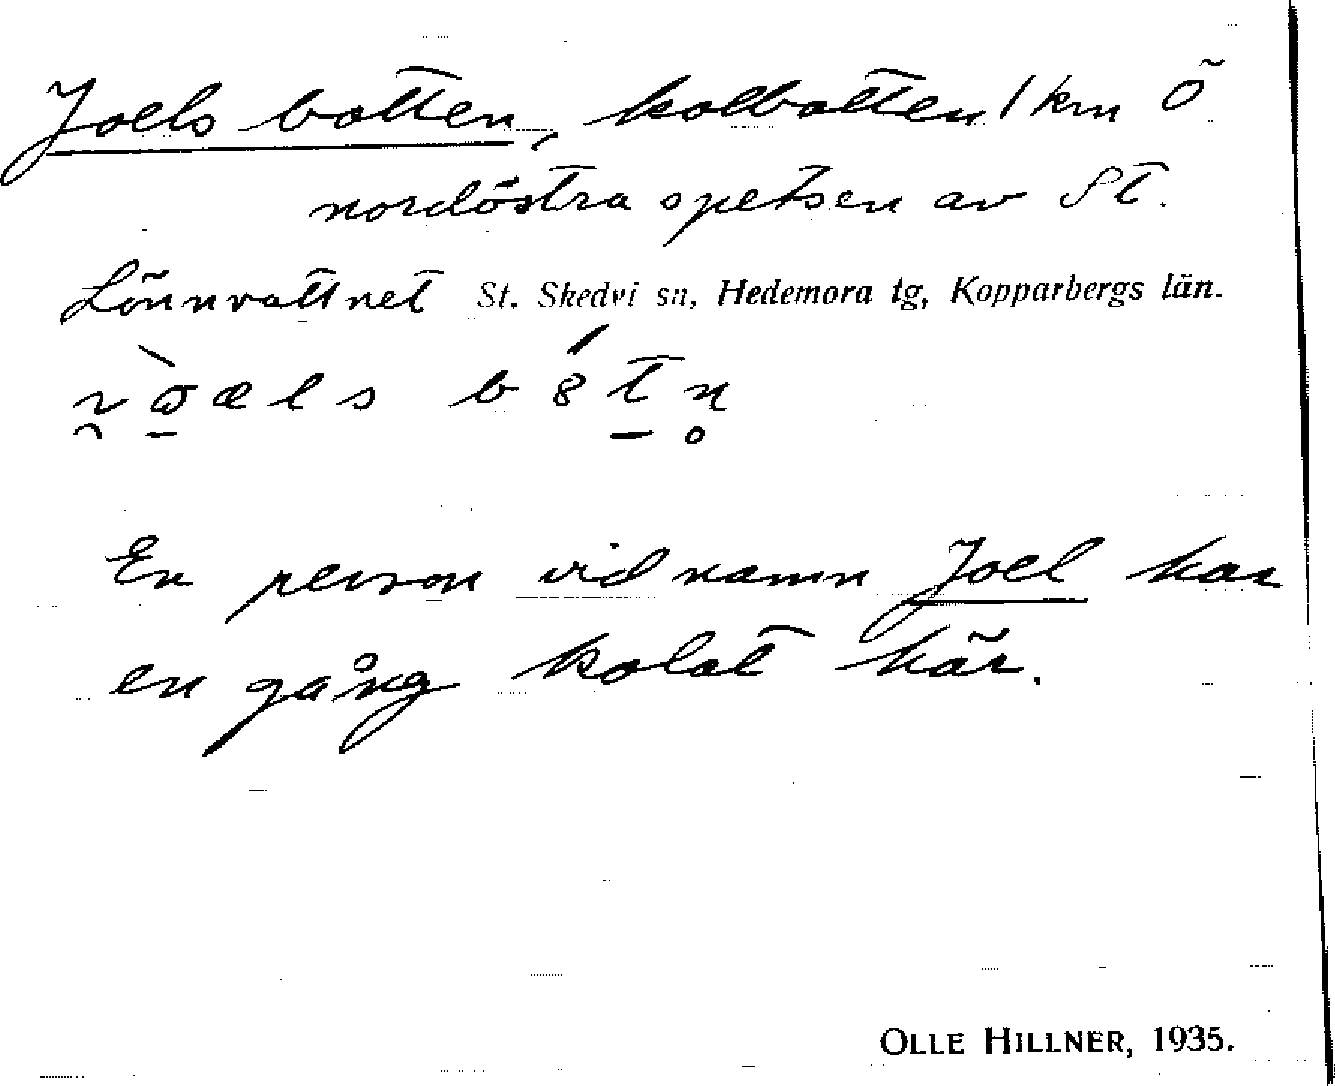 Joels botten, kolbotten 1 km Ö
nordöstra spetsen av St.
Lönnvattnet St. Skedvi sn, Hedemora tg, Kopparbergs län.
En person vid namn Joel har
en gång kolat här.
OLLE HILLNER, 1935.